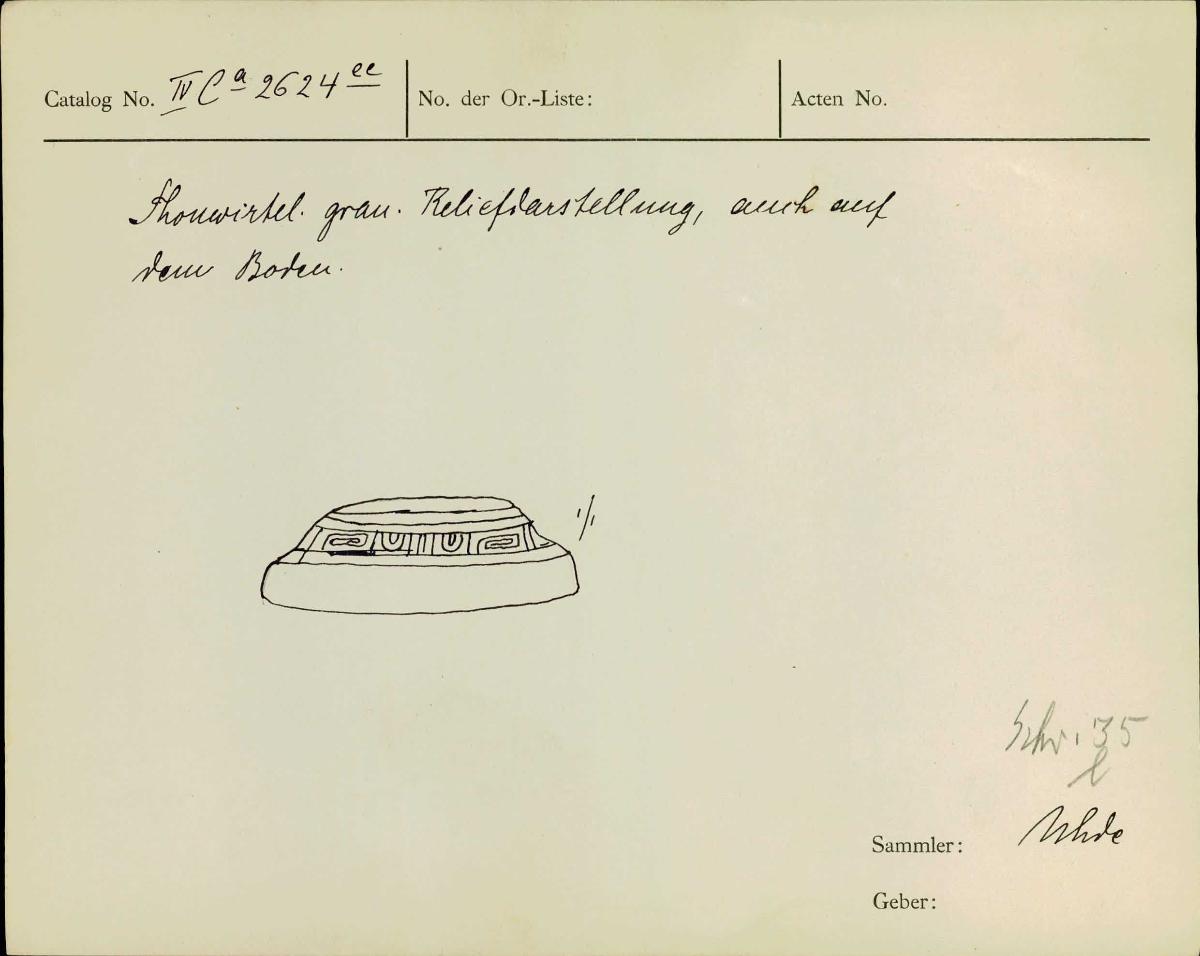 Catalog No. IV Ca 2624 ee
No. der Or.-Liste:
Acten No.
Thonwirtel. grau. Reliefdarstellung, auch auf
dem Boden.
1/1
Schr. 35
l
Sammler: Uhde
Geber: